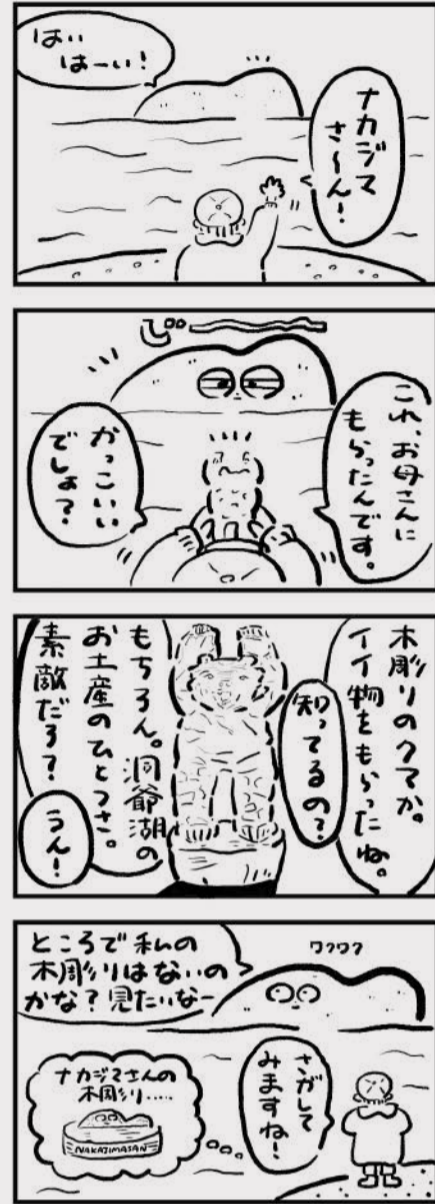 ナカジマ
さ〜ん!
はい
はーい!
じーっ
これ、お母さんに
もらったんです。
かっこいい
でしょ?
木彫りのクマか。
イイ物をもらったね。
知ってるの?
もちろん。洞爺湖の
お土産のひとつさ。
素敵だろ?
うん!
ワクワク
ところで私の
木彫りはないの
かな?見たいなー
さがして
みますね!
ナカジマさんの
木彫り……
NAKAJIMASAN